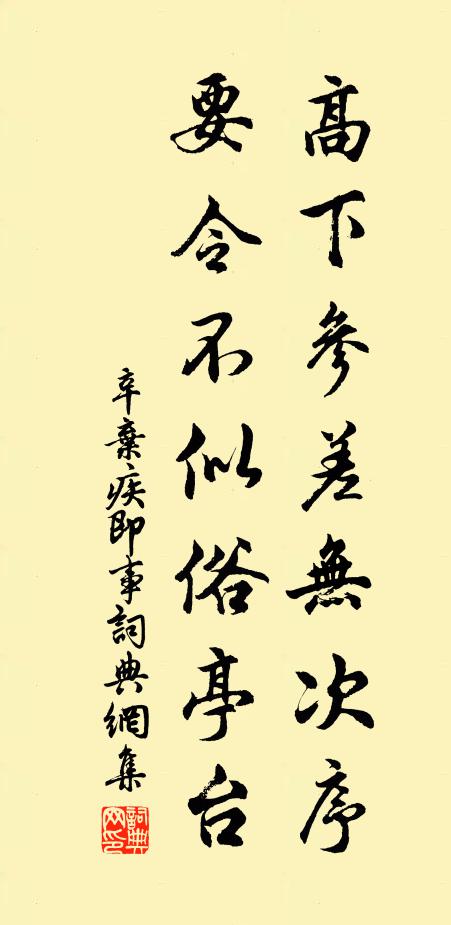 高下參差無次序
要令不似俗亭台
辛棄疾即事詞典網集
詞典
网印